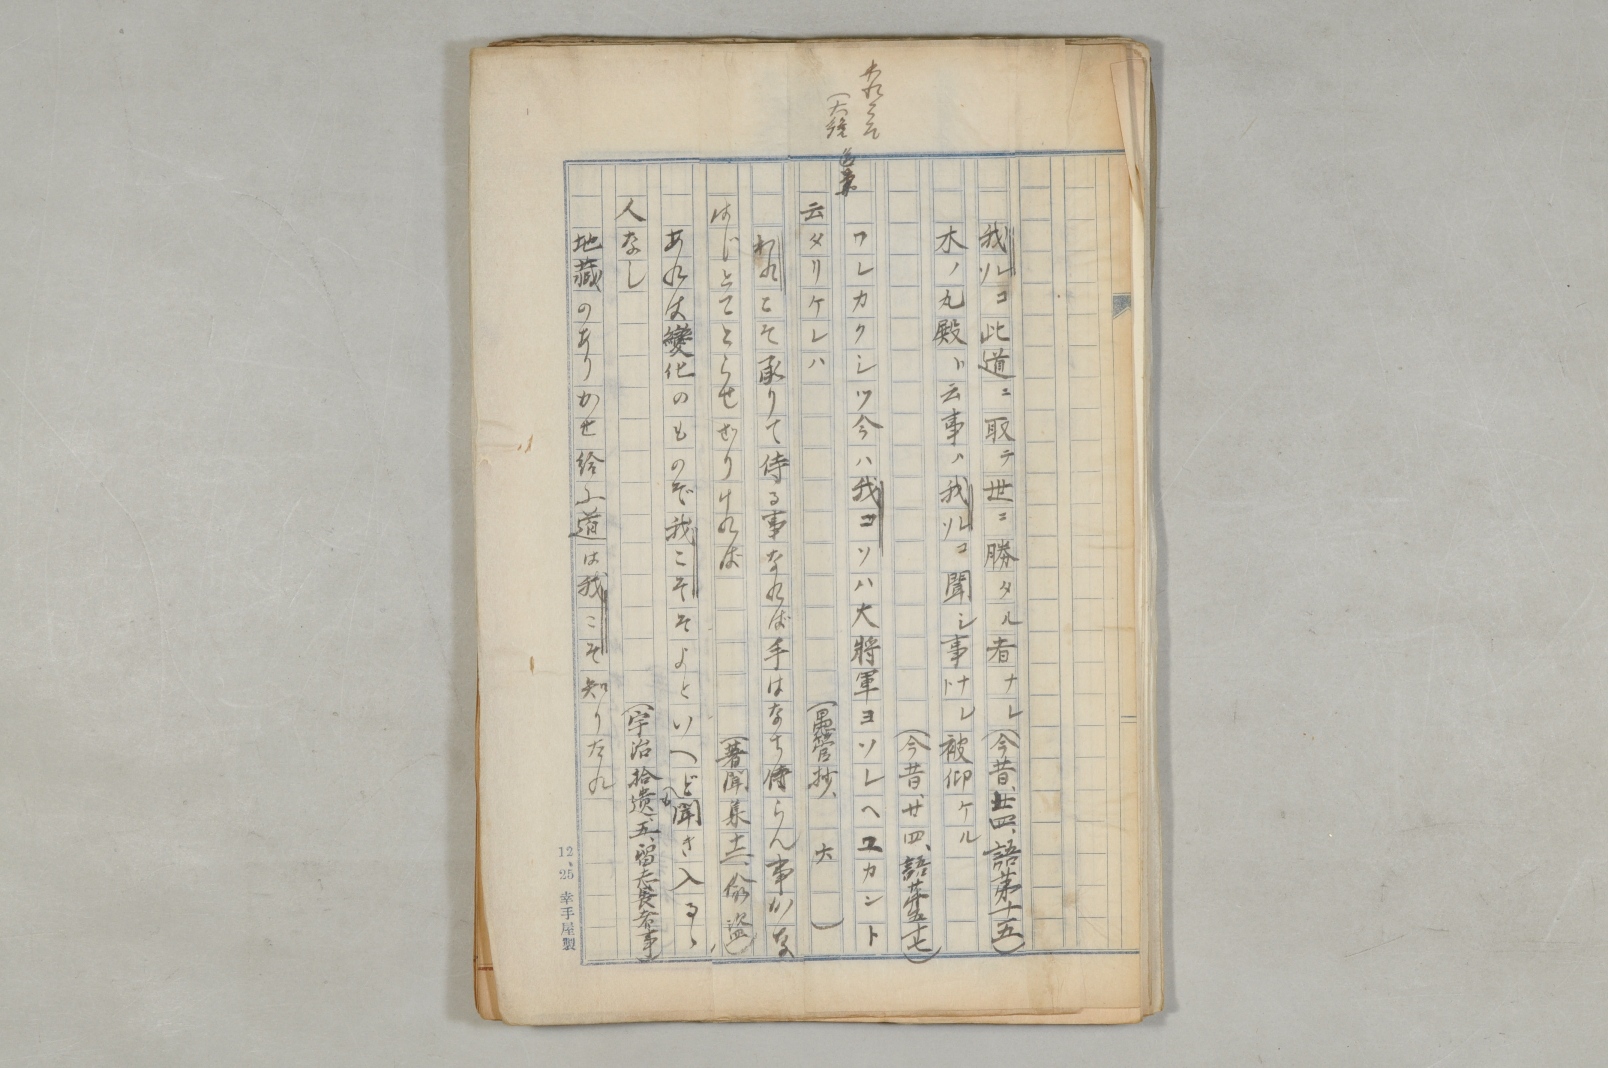 われこそ
(大鏡
我ソレコ此道ニ取テ世ニ勝タル者ナレ(今昔、廿四、語第十五)
木ノ丸殿ト云事ハ我ソレコ聞シ事トナレ被仰ケル
(今昔、廿四、語第五十七)
ワレカクシツ今ハ我コソハ大將軍ヨソレヘユカントト
云タリケレハ(愚管抄、六)
われこそ承りて侍る事なれば手はなち侍らん事かな
はじとてとらせざりければ(著聞集十二、偸盗)
あれは變化のものぞ我こそそよといへども聞き入るゝ
人なし(宇治拾遺五、留志長者事)
地藏のありかせ給ふ道は我こそ知りたれ
12、25 幸手屋製